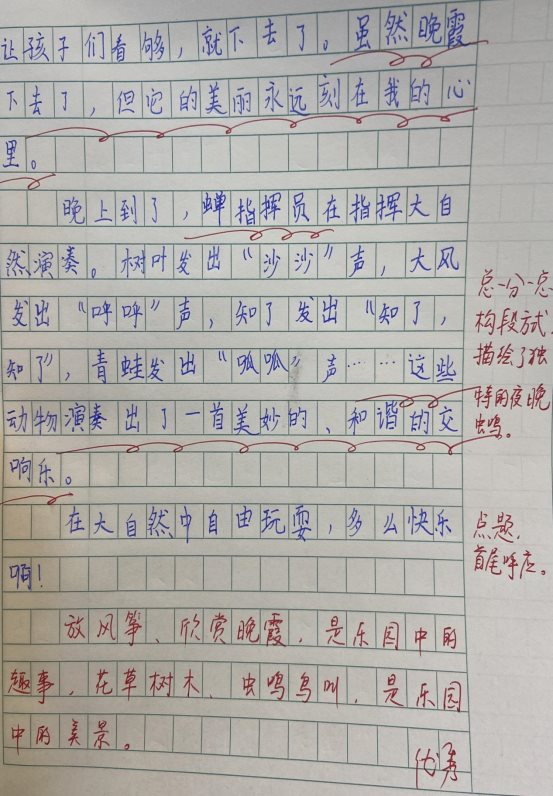 让孩子们看够，就下去了。虽然晚霞
下去了，但它的美丽永远刻在我的心
里。
晚上到了，蝉指挥员在指挥大自
然演奏。树叶发出“沙沙”声，大风
发出“呼呼”声，知了发出“知了，
知了”，青蛙发出“呱呱”声……这些
动物演奏出了一首美妙的、和谐的交
响乐。
总-分-总
构段方式，
描绘了独
特的夜晚
虫鸣。
在大自然中自由玩耍，多么快乐
啊！
点题，
首尾呼应。
放风筝、欣赏晚霞，是乐园中的
趣事，花草树木、虫鸣鸟叫，是乐园
中的美景。
优秀